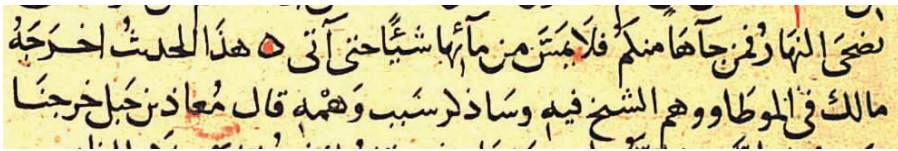 يضحى النهار فمن جآها منكم فلا يمسن من مآئها شيئًا حتى آتى ه هذا الحديث اخرجه
مالك في الموطا ووهم الشيخ فيه وساذكر سبب وهمه قال معاذ بن جبل خرجنا